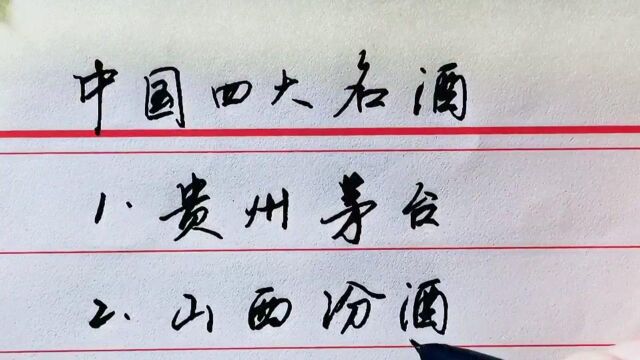 中国四大名酒
1.贵州茅台
2.山西汾酒